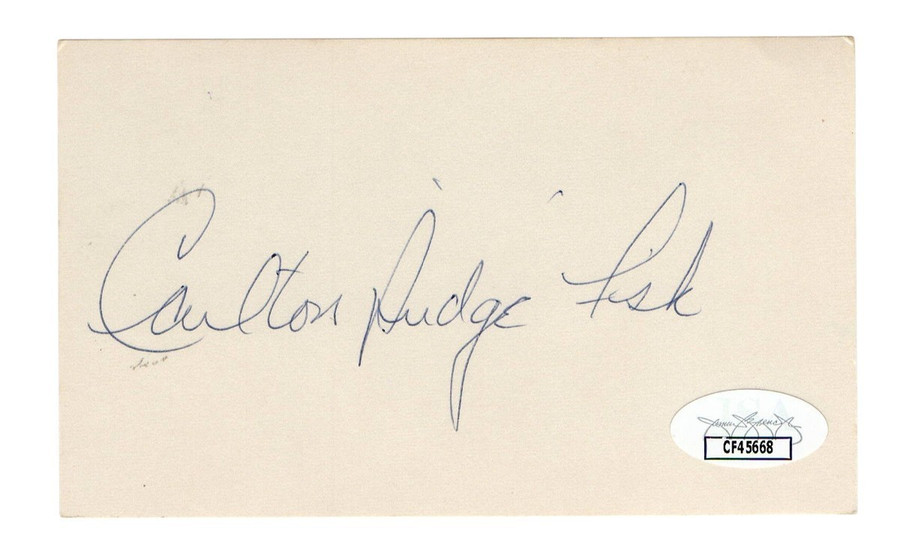 Carlton Pudge Fisk
CF45668